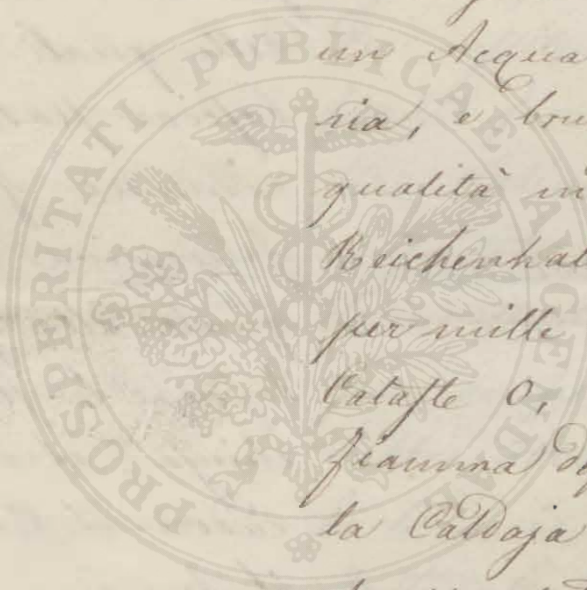 PROSPERITATI PVBLICAE AVGENDAE
un Acqua
ria, e bru
qualità in
Reichenhal
per mille
Cataste O,
fiamma
la Caldaja